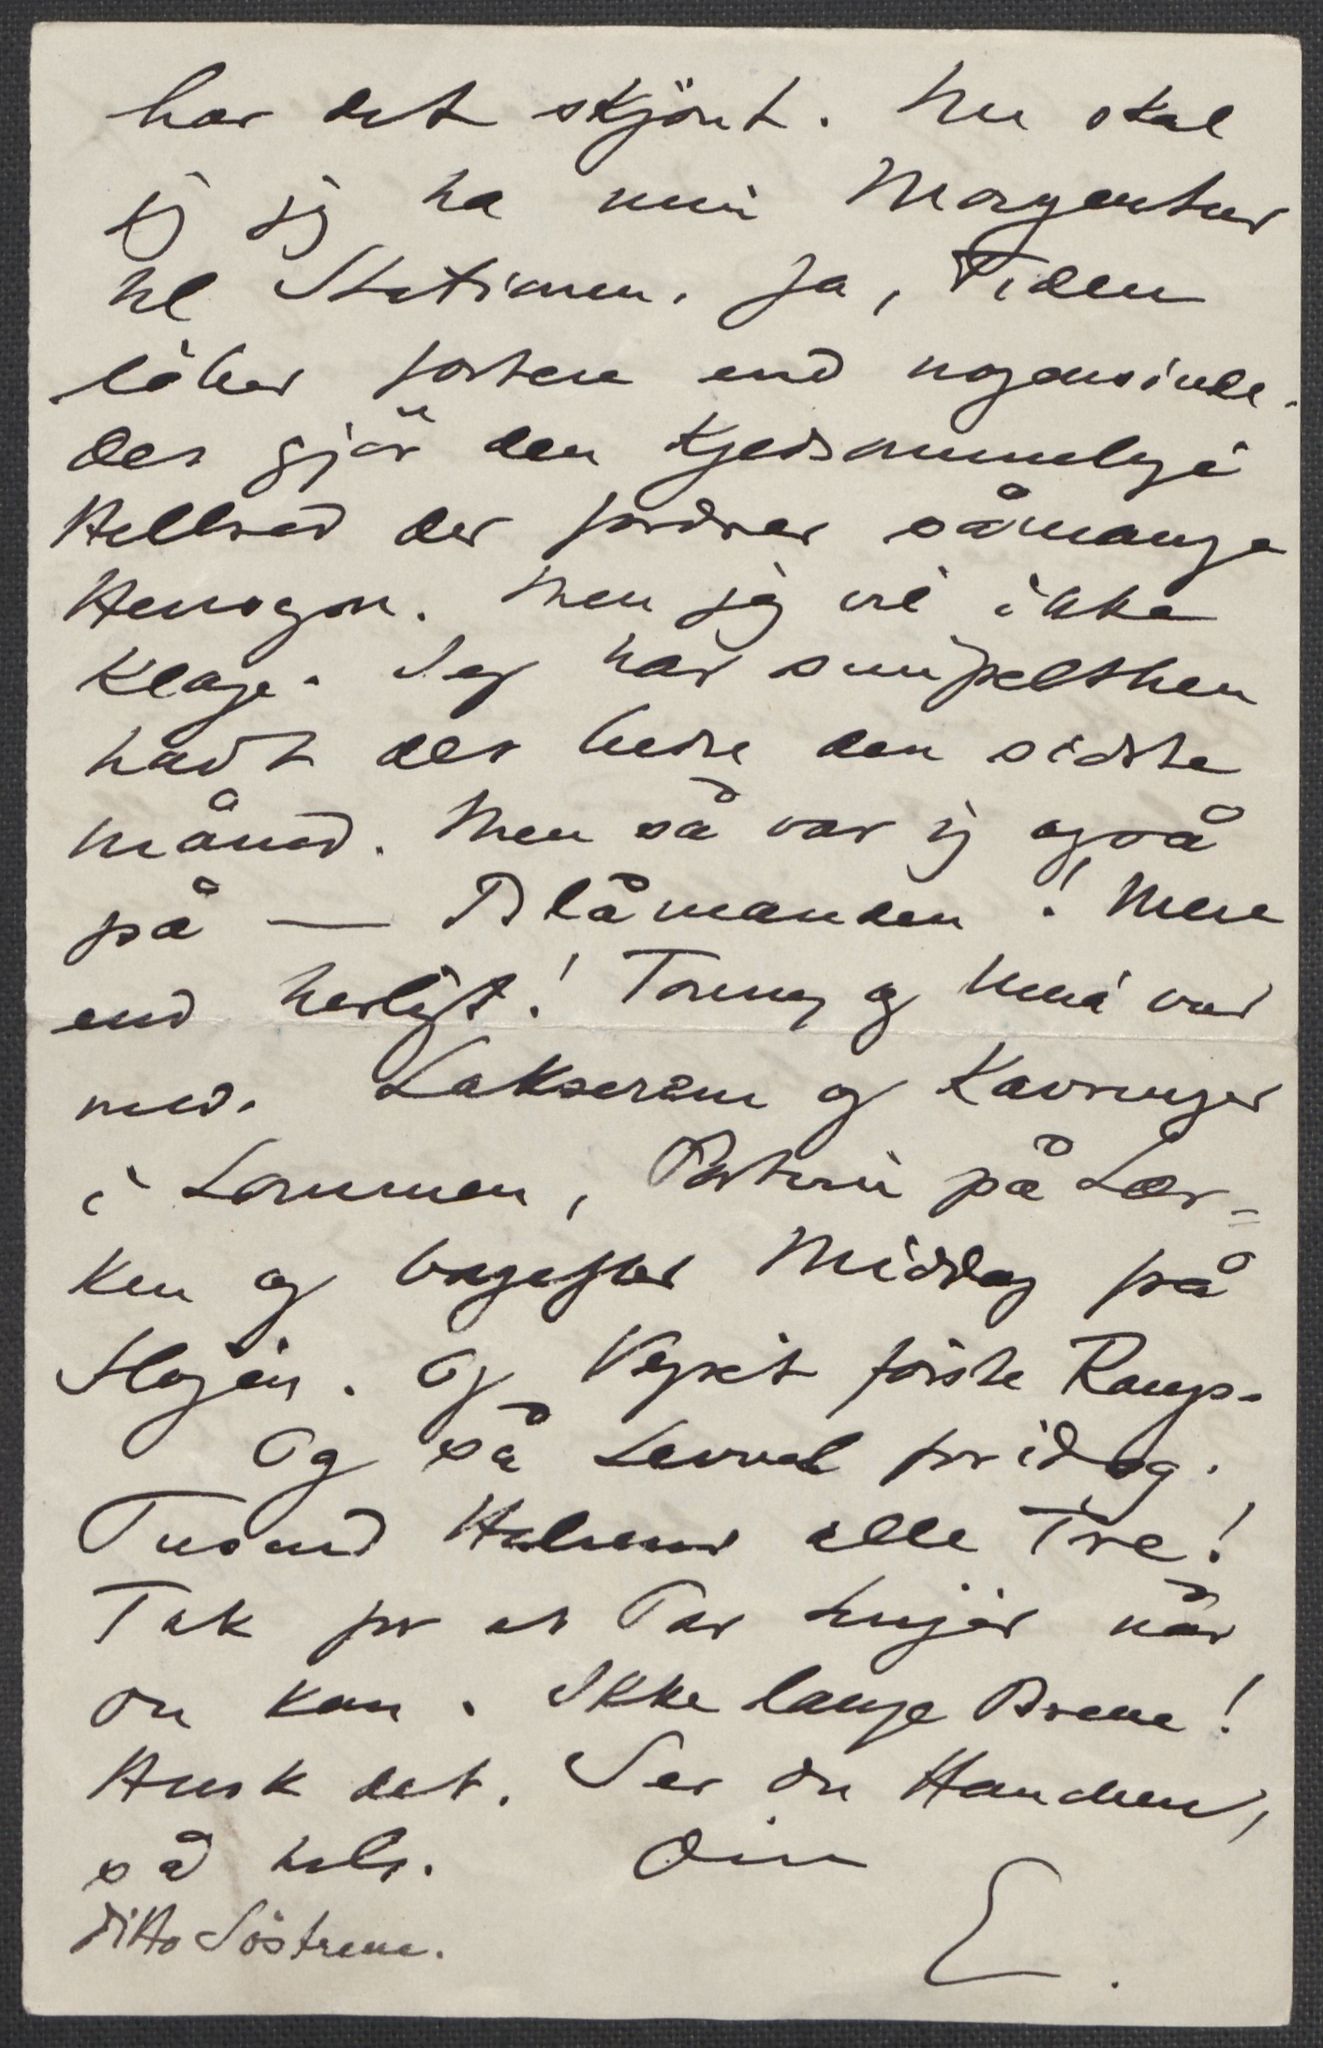 har det skjönt. Nu skal
jeg jeg ha min Morgentur
til Stationen. Ja, Tiden
löber fortere end nogensinde.
Det gjör den kjedsommelige
Helbred der fordrer såmange
Hensyn. Men jeg vil ikke
klage. Jeg har simpelthen
havt det bedre den sidste
måned. Men så var jeg også
på — Blåmanden! Mere
end herligt! Tonny og Nina var
med. Lakserøm og Kavringer
i Lommen, Portvin på Lær-
ken og bagefter Middag på
Fløien. Og Veiret første Rangs.
Og så Levvel foridag.
Tusend Hilsener alle Tre!
Tak for at Par linjer når
du kan. Ikke lange Breve!
Husk det. Ser du Hanchen,
så hils. Din
ditto Söstrene. E.